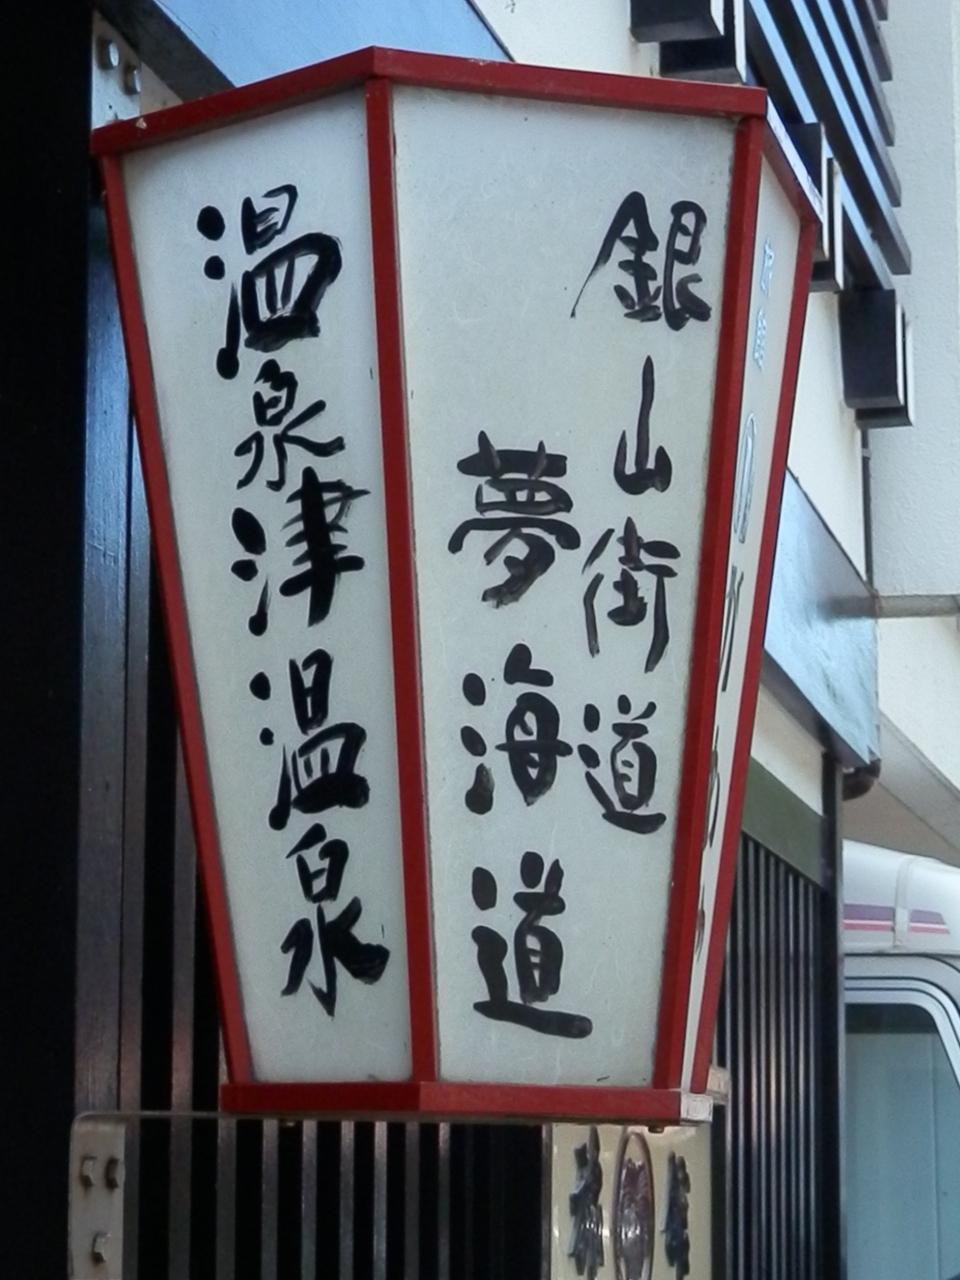 銀山街道
夢海道
温泉津温泉